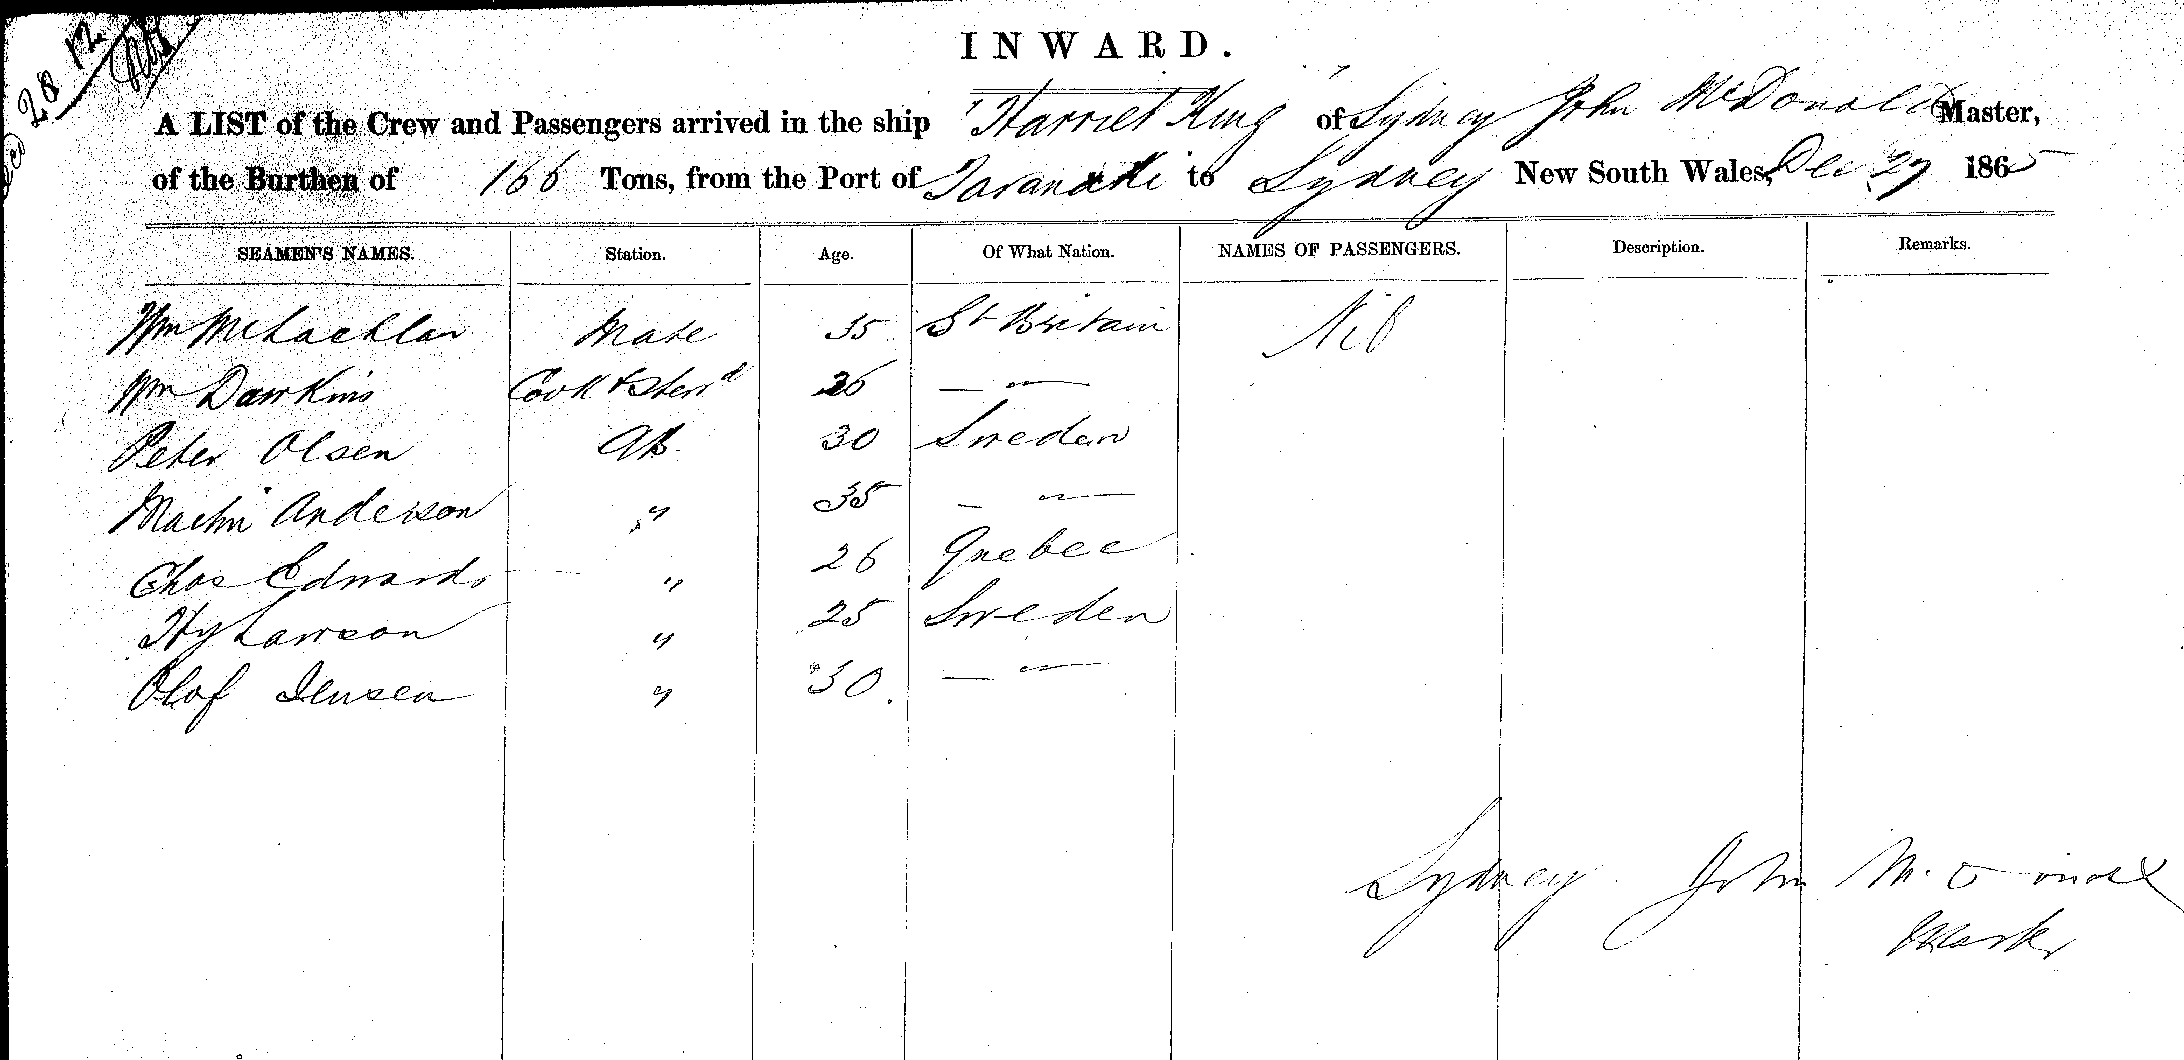 28/12
INWARD.
A LIST of the Crew and Passengers arrived in the ship "Harriet King" of Sydney John McDonald Master,
of the Burthen of 166 Tons, from the Port of Taranaki to Sydney New South Wales, Dec 27 1865
SEAMEN'S NAMES. Station. Age. Of What Nation. NAMES OF PASSENGERS. Description. Remarks.
Wm McLachlan Mate 35 Gt Britain Nil
Wm Dawkins Cook & Stewd 26 — " —
Peter Olsen AB. 30 Sweden
Martin Anderson " 35 — " —
Chas Edwards " 26 Quebec
Hy Lawson " 25 Sweden
Olof Jensen " 30. — " —
Sydney John
Master